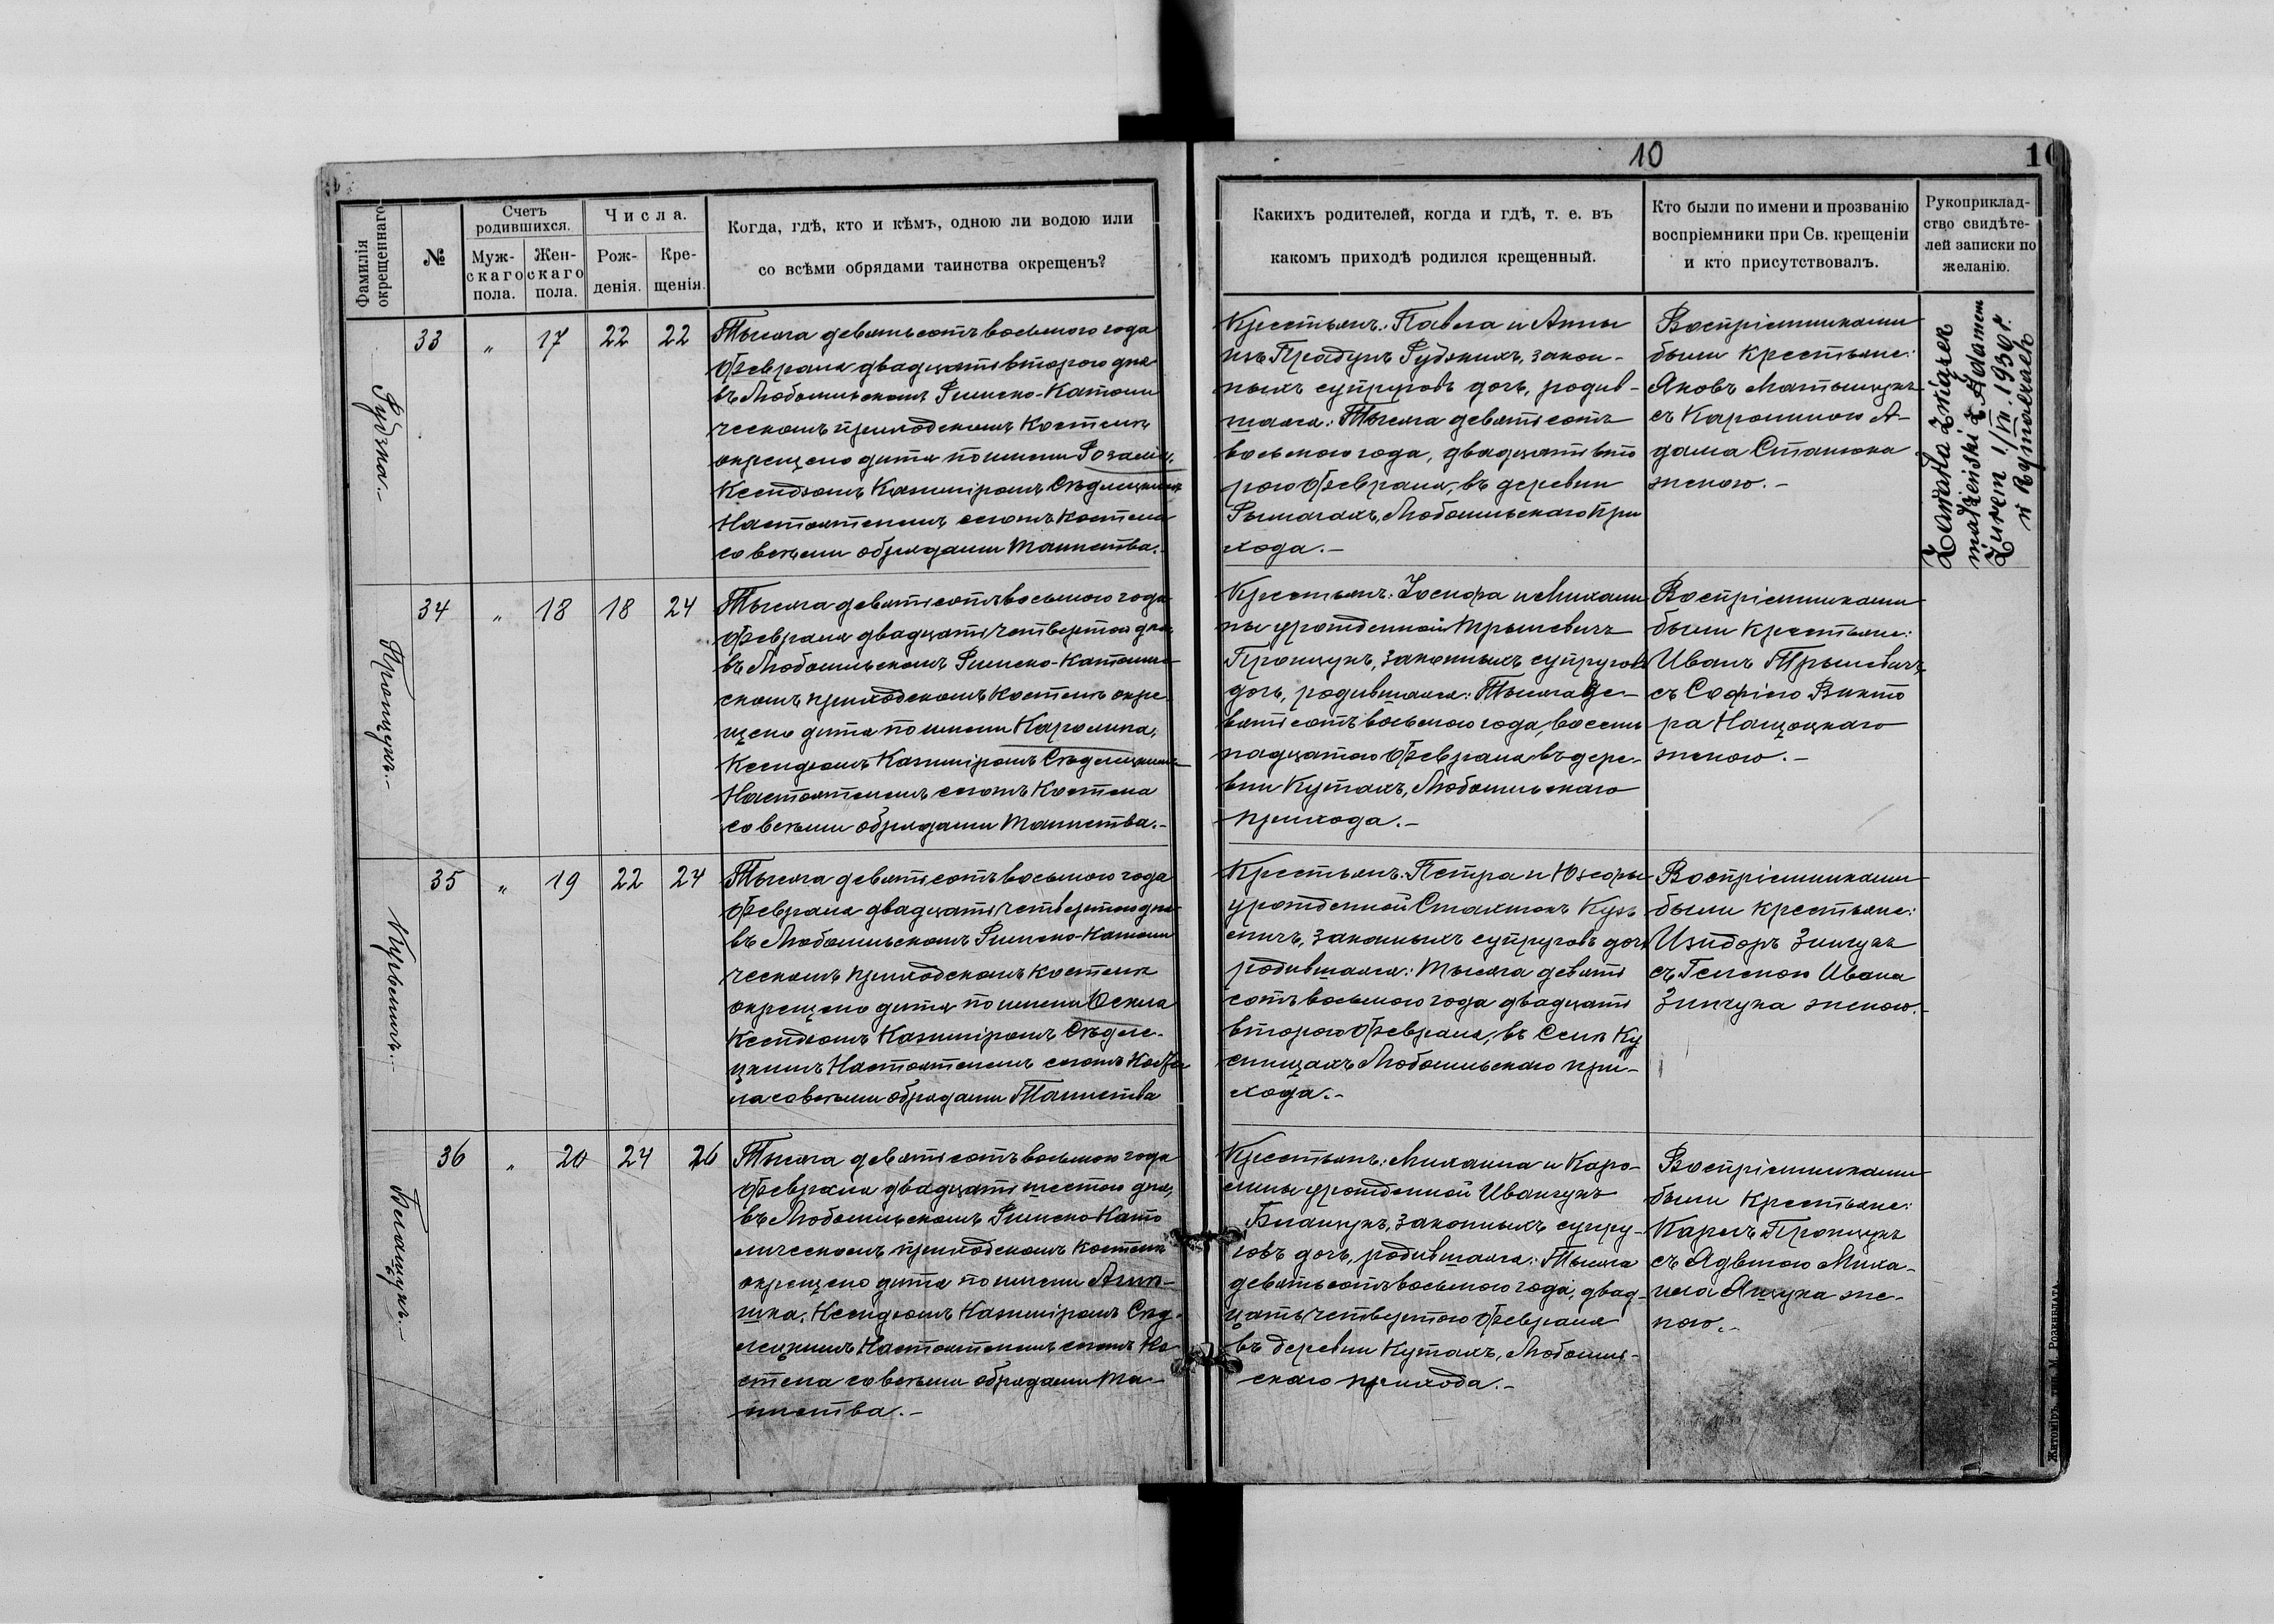 10
10
Фамилія окрещеннаго
№
Счетъ родившихся.
Муж-
скаго
пола.
Жен-
скаго
пола.
Числа.
Рож-
денія.
Кре-
щенія.
Когда, гдѣ, кто и кѣмъ, одною ли водою или
со всѣми обрядами таинства окрещенъ?
Какихъ родителей, когда и гдѣ, т. е. въ
какомъ приходѣ родился крещенный.
Кто были по имени и прозванію
воспріемники при Св. крещеніи
и кто присутствовалъ.
Рукоприклад-
ство свидѣте-
лей записки по
желанію.
Рудзка.-
33 " 17 22 22
Тысяча девятьсотъ восьмого года
Февраля двадцать второго дня
въ Любомльскомъ Римско-Католи
ческомъ приходскомъ Костелѣ
окрещено дитя по имени Розалія,
Ксендзомъ Казиміромъ Сѣдлецкимъ
Настоятелемъ сегожъ Костела
со всѣми обрядами Таинства.-
Крестьянъ: Павла и Анны
изъ Прадунъ Рудзкихъ, закон-
ныхъ супруговъ дочь, родив-
шаяся: Тысяча девятьсотъ
восьмого года, двадцать вто
рого Февраля, въ деревни
Рымачахъ, Любомльскаго при
хода.-
Воспріемниками
были крестьяне:
Яковъ Матыщукъ
съ Каролиною А-
дама Станюка
женою.-
Zawarła związek
małżeński z Adamem
Żurem 1/VII. 1930 r.
w Rymaczach
Прокщукъ.-
34 " 18 18 24
Тысяча девятьсотъ восьмого года
Февраля двадцать четвертого дня
въ Любомльскомъ Римско-Католиче-
скомъ приходскомъ Костелѣ окре
щено дитя по имени Каролина,
Ксендзомъ Казиміромъ Сѣдлецкимъ
Настоятелемъ сегожъ Костела
со всѣми обрядами Таинства.-
Крестьянъ: Іосифа и Михали
ны урожденной Трылевичъ
законныхъ супруговъ
дочь, родившаяся: Тысяча де-
вятьсотъ восьмого года, восем
надцатого Февраля въ дере-
вни Кутахъ, Любомльскаго
прихода.-
Воспріемниками
были крестьяне:
Иванъ Трылевичъ
съ Софіею Викто
ра
женою.-
35 " 19 22 24
Тысяча девятьсотъ восьмого года
Февраля двадцать четвертого дня
въ Любомльскомъ Римско-Католи
ческомъ приходскомъ Костелѣ
окрещено дитя по имени Юскиа
Ксендзомъ Казиміромъ Сѣдле-
цкимъ Настоятелемъ сегожъ Косте
ла со всѣми обрядами Таинства
Крестьянъ: Петра и Юзефы
урожденной
законныхъ супруговъ дочь
родившаяся: Тысяча девять
сотъ восьмого года двадцать
второго Февраля, въ Селѣ Ку
снищахъ Любомльскаго при-
хода.-
Воспріемниками
были крестьяне:
Изидоръ Зинчукъ
съ Геленою Ивана
Зинчука женою.
36 " 20 24 26
Тысяча девятьсотъ восьмого года
Февраля двадцать шестого дня,
въ Любомльскомъ Римско Като
лическомъ приходскомъ Костелѣ
окрещено дитя по имени Агнѣ-
шка, Ксендзомъ Казиміромъ Сѣд-
лецкимъ Настоятелемъ сегожъ Ко
стела со всѣми обрядами Та-
инства.-
Крестьянъ: Михаила и Каро-
лины урожденной Иванчукъ
законныхъ супру-
говъ дочь, родившаяся: Тысяча
девятьсотъ восьмого года, двад-
цать четвертого Февраля
въ деревни Кутахъ, Любомль-
скаго прихода.-
Воспріемниками
были крестьяне:
Каролъ Прокщукъ
съ Ядвигою Миха-
ила Ящука же-
ною.-
Житоміръ, тип. М. Розенблата.